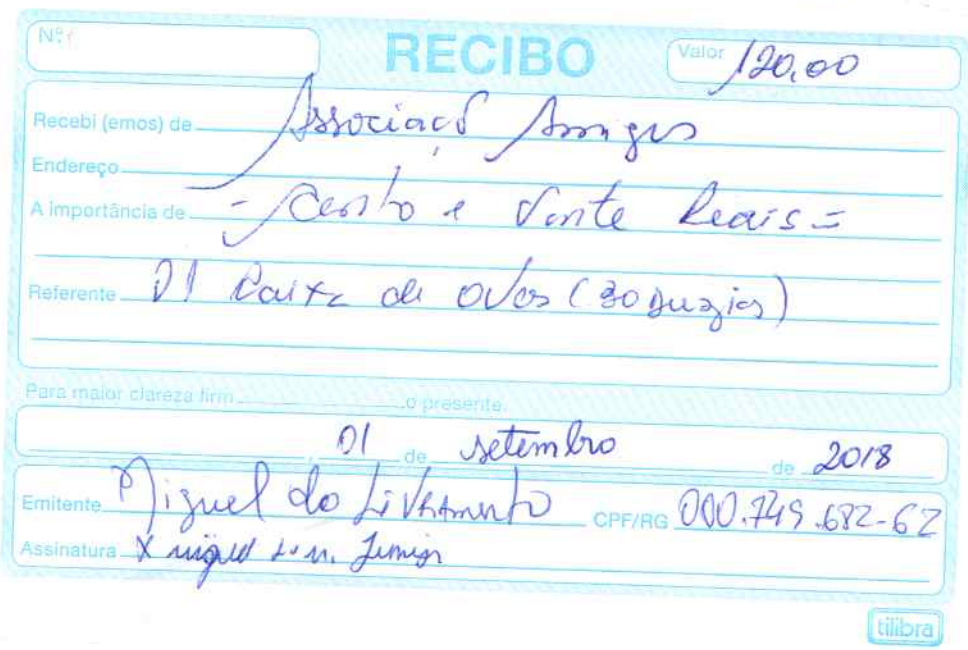 Nº
RECIBO
Valor 120,00
Recebi (emos) de Associaçõ Amigos
Endereço
A importância de - Cento e Vinte Reais =
Referente 01 Caixa de ovos (30 Duzias)
Para maior clareza firm o presente.
01 de setembro de 2018
Emitente Miguel do Livramento CPF/RG 000.749.682-62
Assinatura X miguel Junior
tilibra